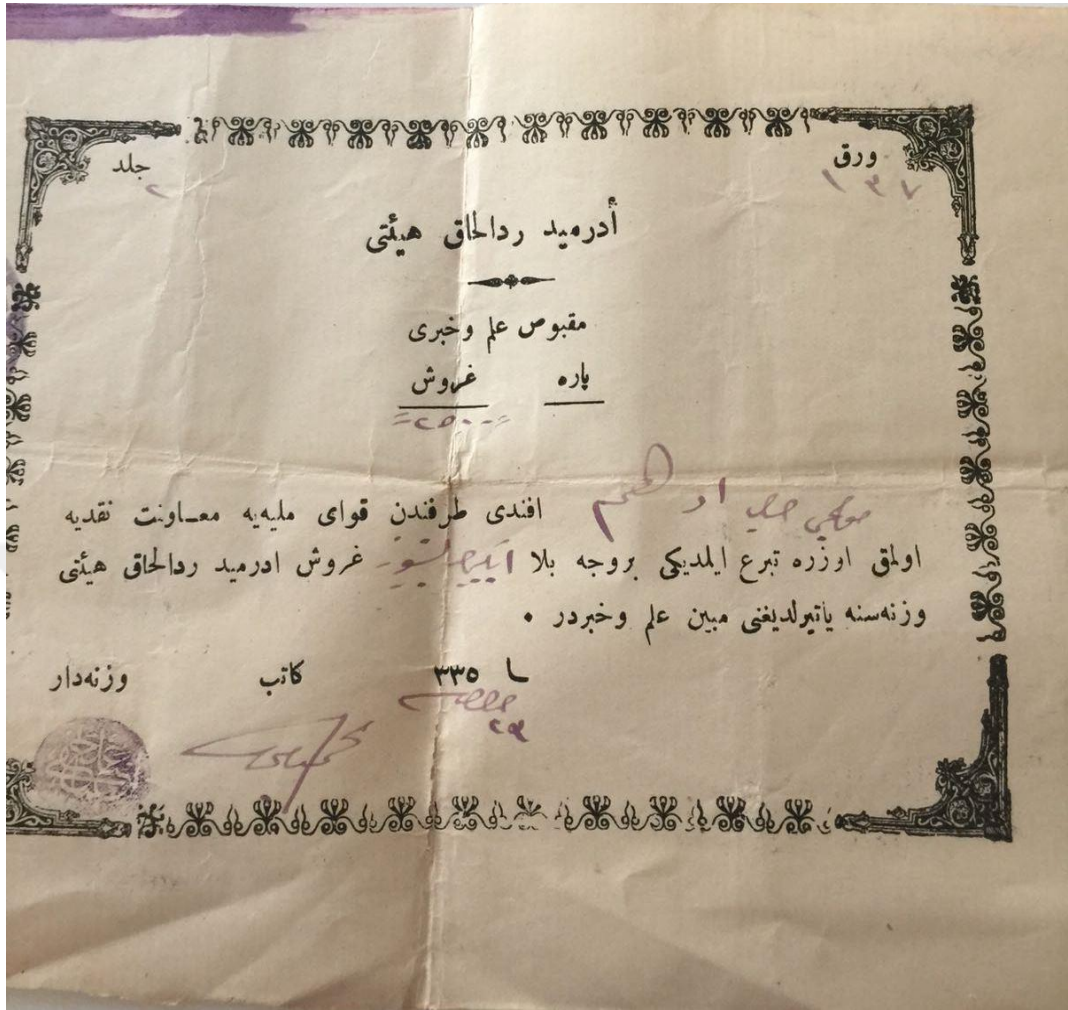 ورق جلد
١٣٧ ٢
أدرميد ردالحاق هيئتى
مقبوص علم وخبرى
پاره غروش
٢٥٠٠
افندى طرفندن قواى مليه‌يه معــاونت نقديه
اولمق اوزره تبرع ايلديكى بروجه بلا ايكيبيك بشيوز غروش ادرميد ردالحاق هيئتى
وزنه‌سنه ياتيرلديغنى مبين علم وخبردر .
٣٣٥ كاتب وزنه‌دار